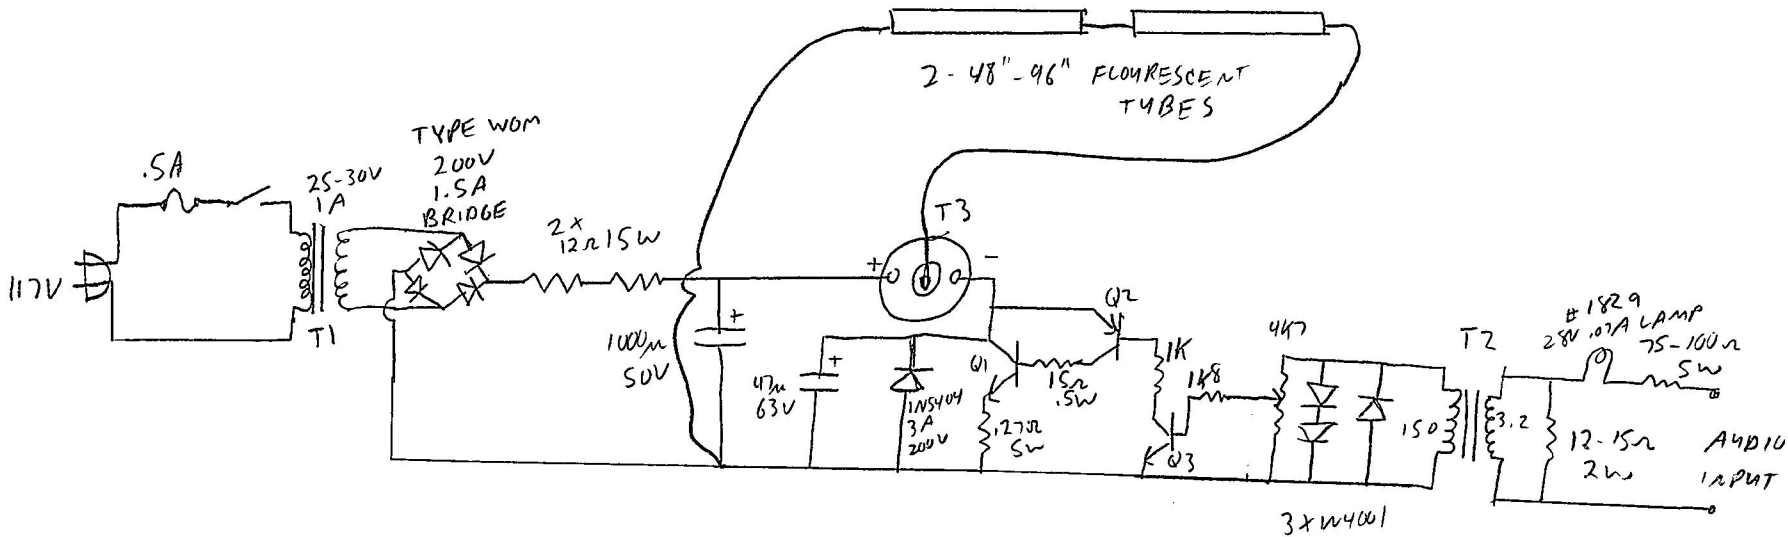 2-48"-96" FLOURESCENT
TUBES
TYPE WOM
200V
1.5A
BRIDGE
.5A
25-30V
1A
117V
T1
2x
12Ω 15W
T3
+
-
1000µ
50V
+
47µ
63V
+
1N5404
3A
200V
Q1
.27Ω
5W
15Ω
.5W
Q2
1K
Q3
1K8
4K7
3x1N4001
150
T2
3.2
#1829
28V .07A LAMP
75-100Ω
5W
12-15Ω
2W
AUDIO
INPUT